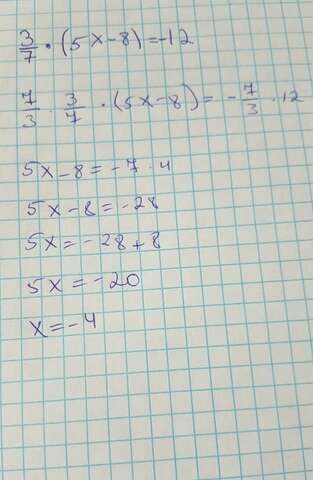 3/7 · (5x-8) = -12
7/3 · 3/7 · (5x-8) = -7/3 · 12
5x-8 = -7 · 4
5x-8 = -28
5x = -28+8
5x = -20
x = -4